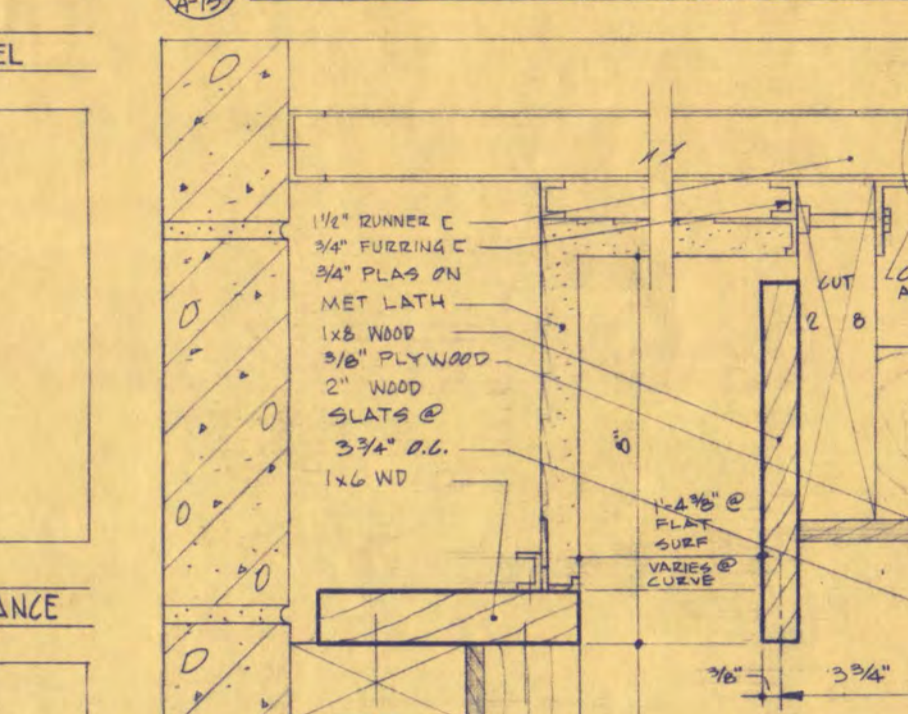 A-15
EL
1 1/2" RUNNER C
3/4" FURRING C
3/4" PLAS ON
MET LATH
1x8 WOOD
3/8" PLYWOOD
2" WOOD
SLATS @
3 3/4" O.C.
1x6 WD
CUT
2 8
8"
1'-4 3/8" @
FLAT
SURF
VARIES @
CURVE
ANCE
3/8"
3 3/4"